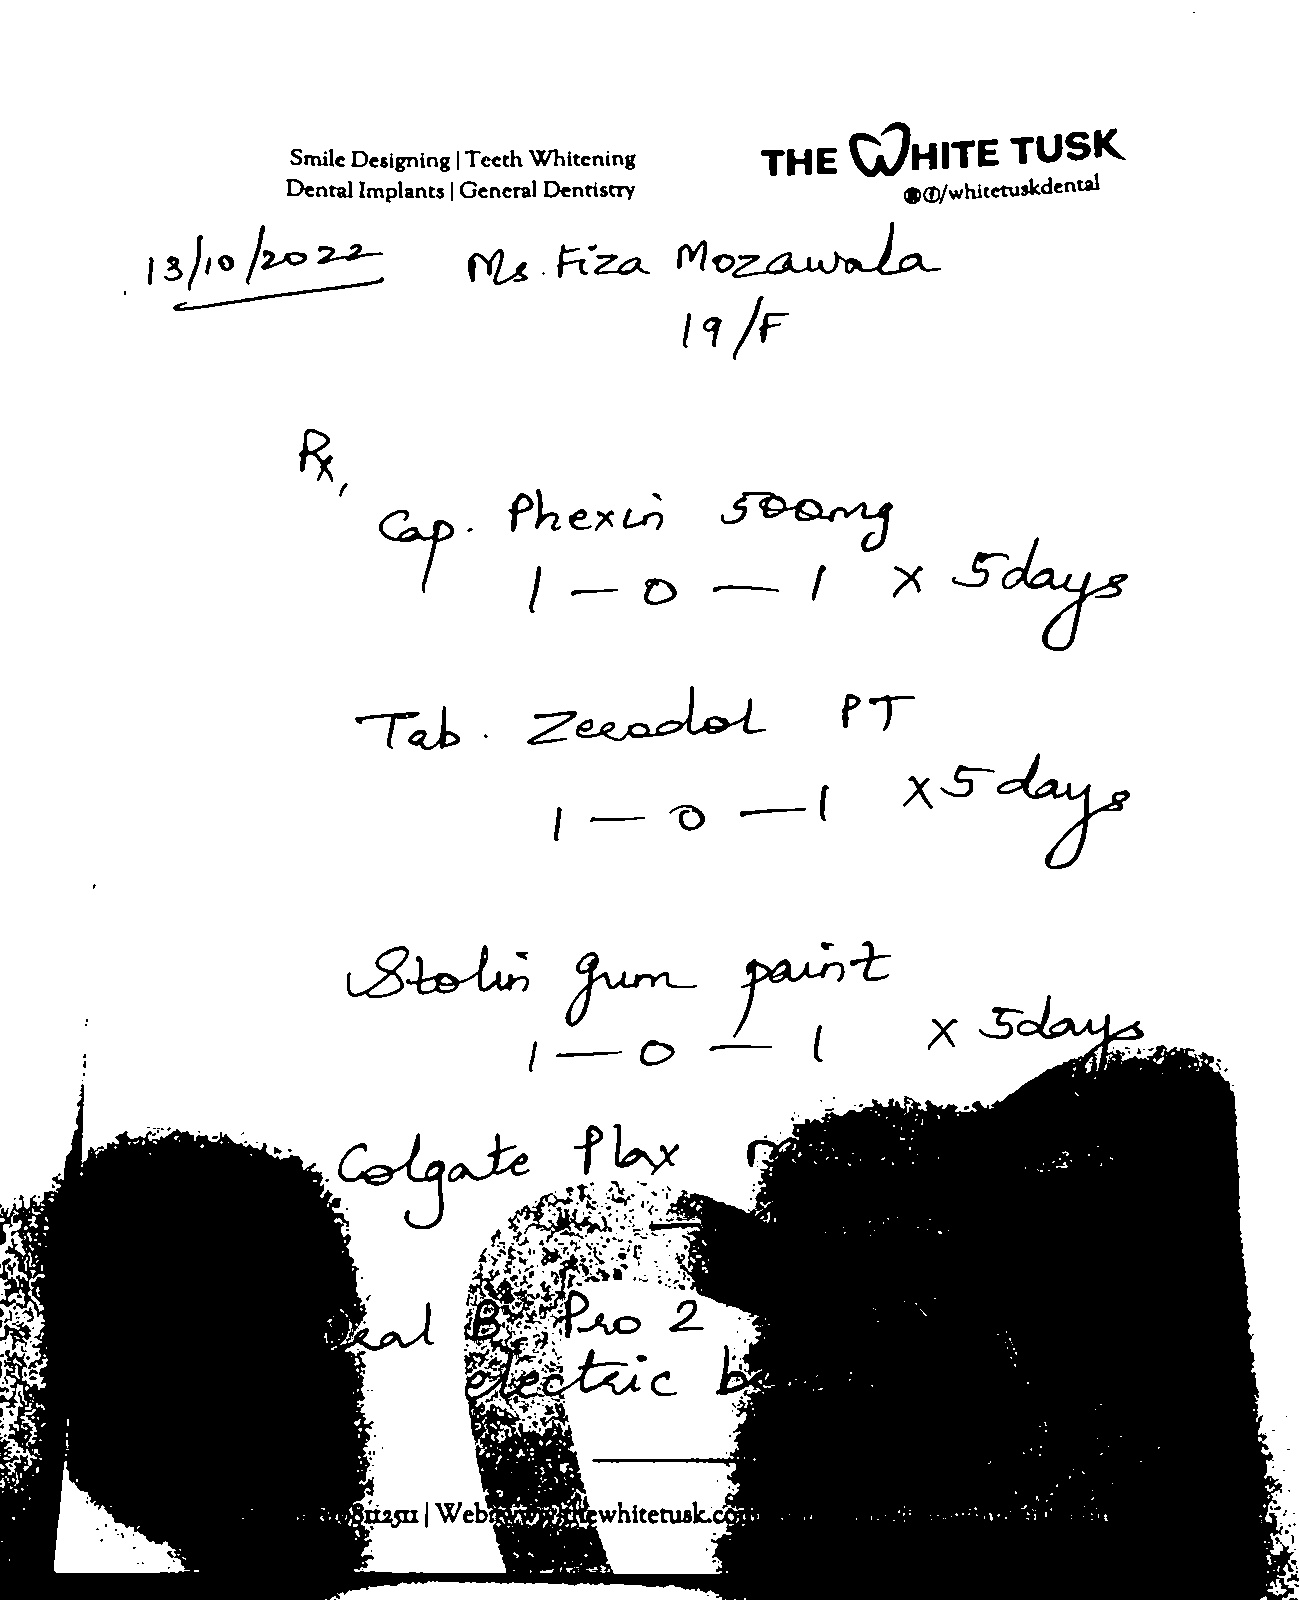 Smile Designing | Teeth Whitening
Dental Implants | General Dentistry
THE WHITE TUSK
/whitetuskdental
13/10/2022
Ms. Fiza Mozawala
19/F
Rx,
Cap. Phexin 500mg
1 - 0 - 1 x 5days
Tab. Zerodol PT
1 - 0 - 1 x 5 days
Stolin gum paint
1 - 0 - 1 x 5days
Colgate Plax
Oral B Pro 2
electric
8112511 | Web: www.thewhitetusk.com